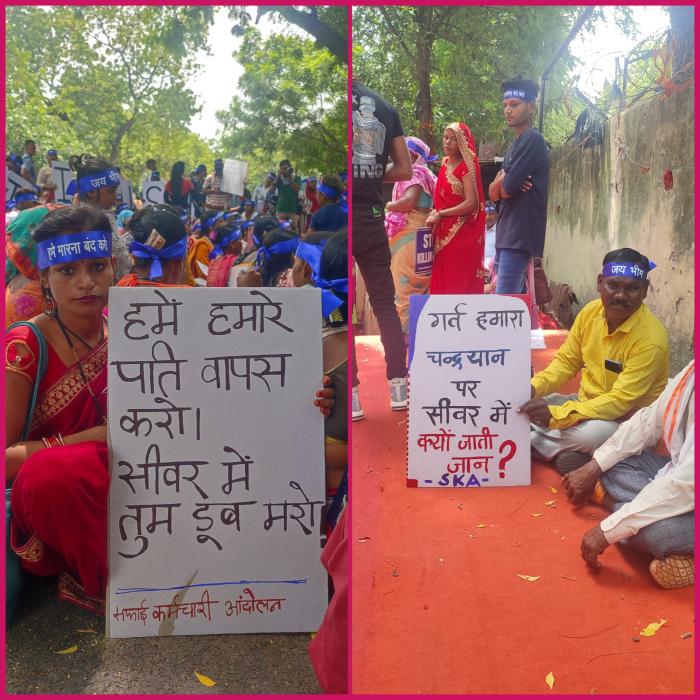 जय भीम
हमे मारना बंद करो
हमें हमारे
पति वापस
करो।
सीवर में
तुम डूब मरो!
सफाई कर्मचारी आंदोलन
जय भीम
गर्त हमारा
चन्द्रयान
पर
सीवर में
क्यों जाती
जान ?
-SKA-